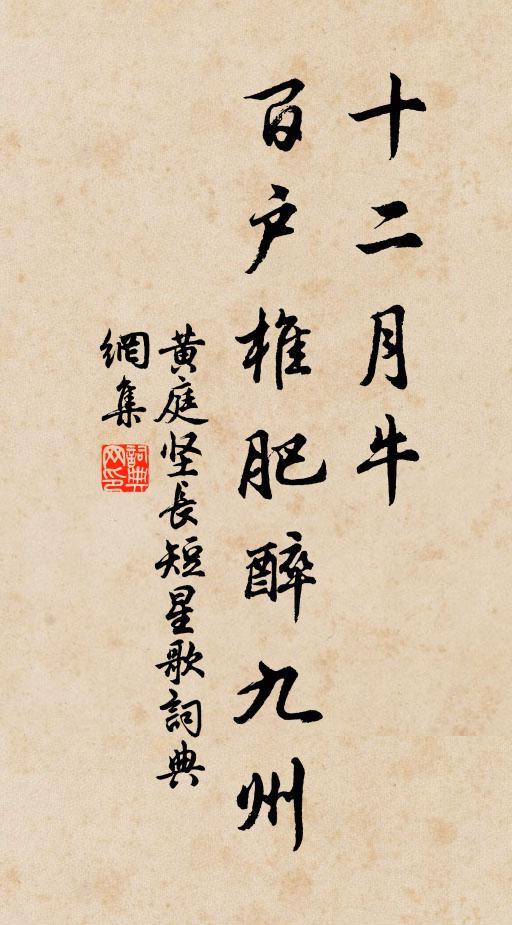 十二月牛
百户椎肥醉九州
黄庭坚長短星歌詞典
網集
詞典網印